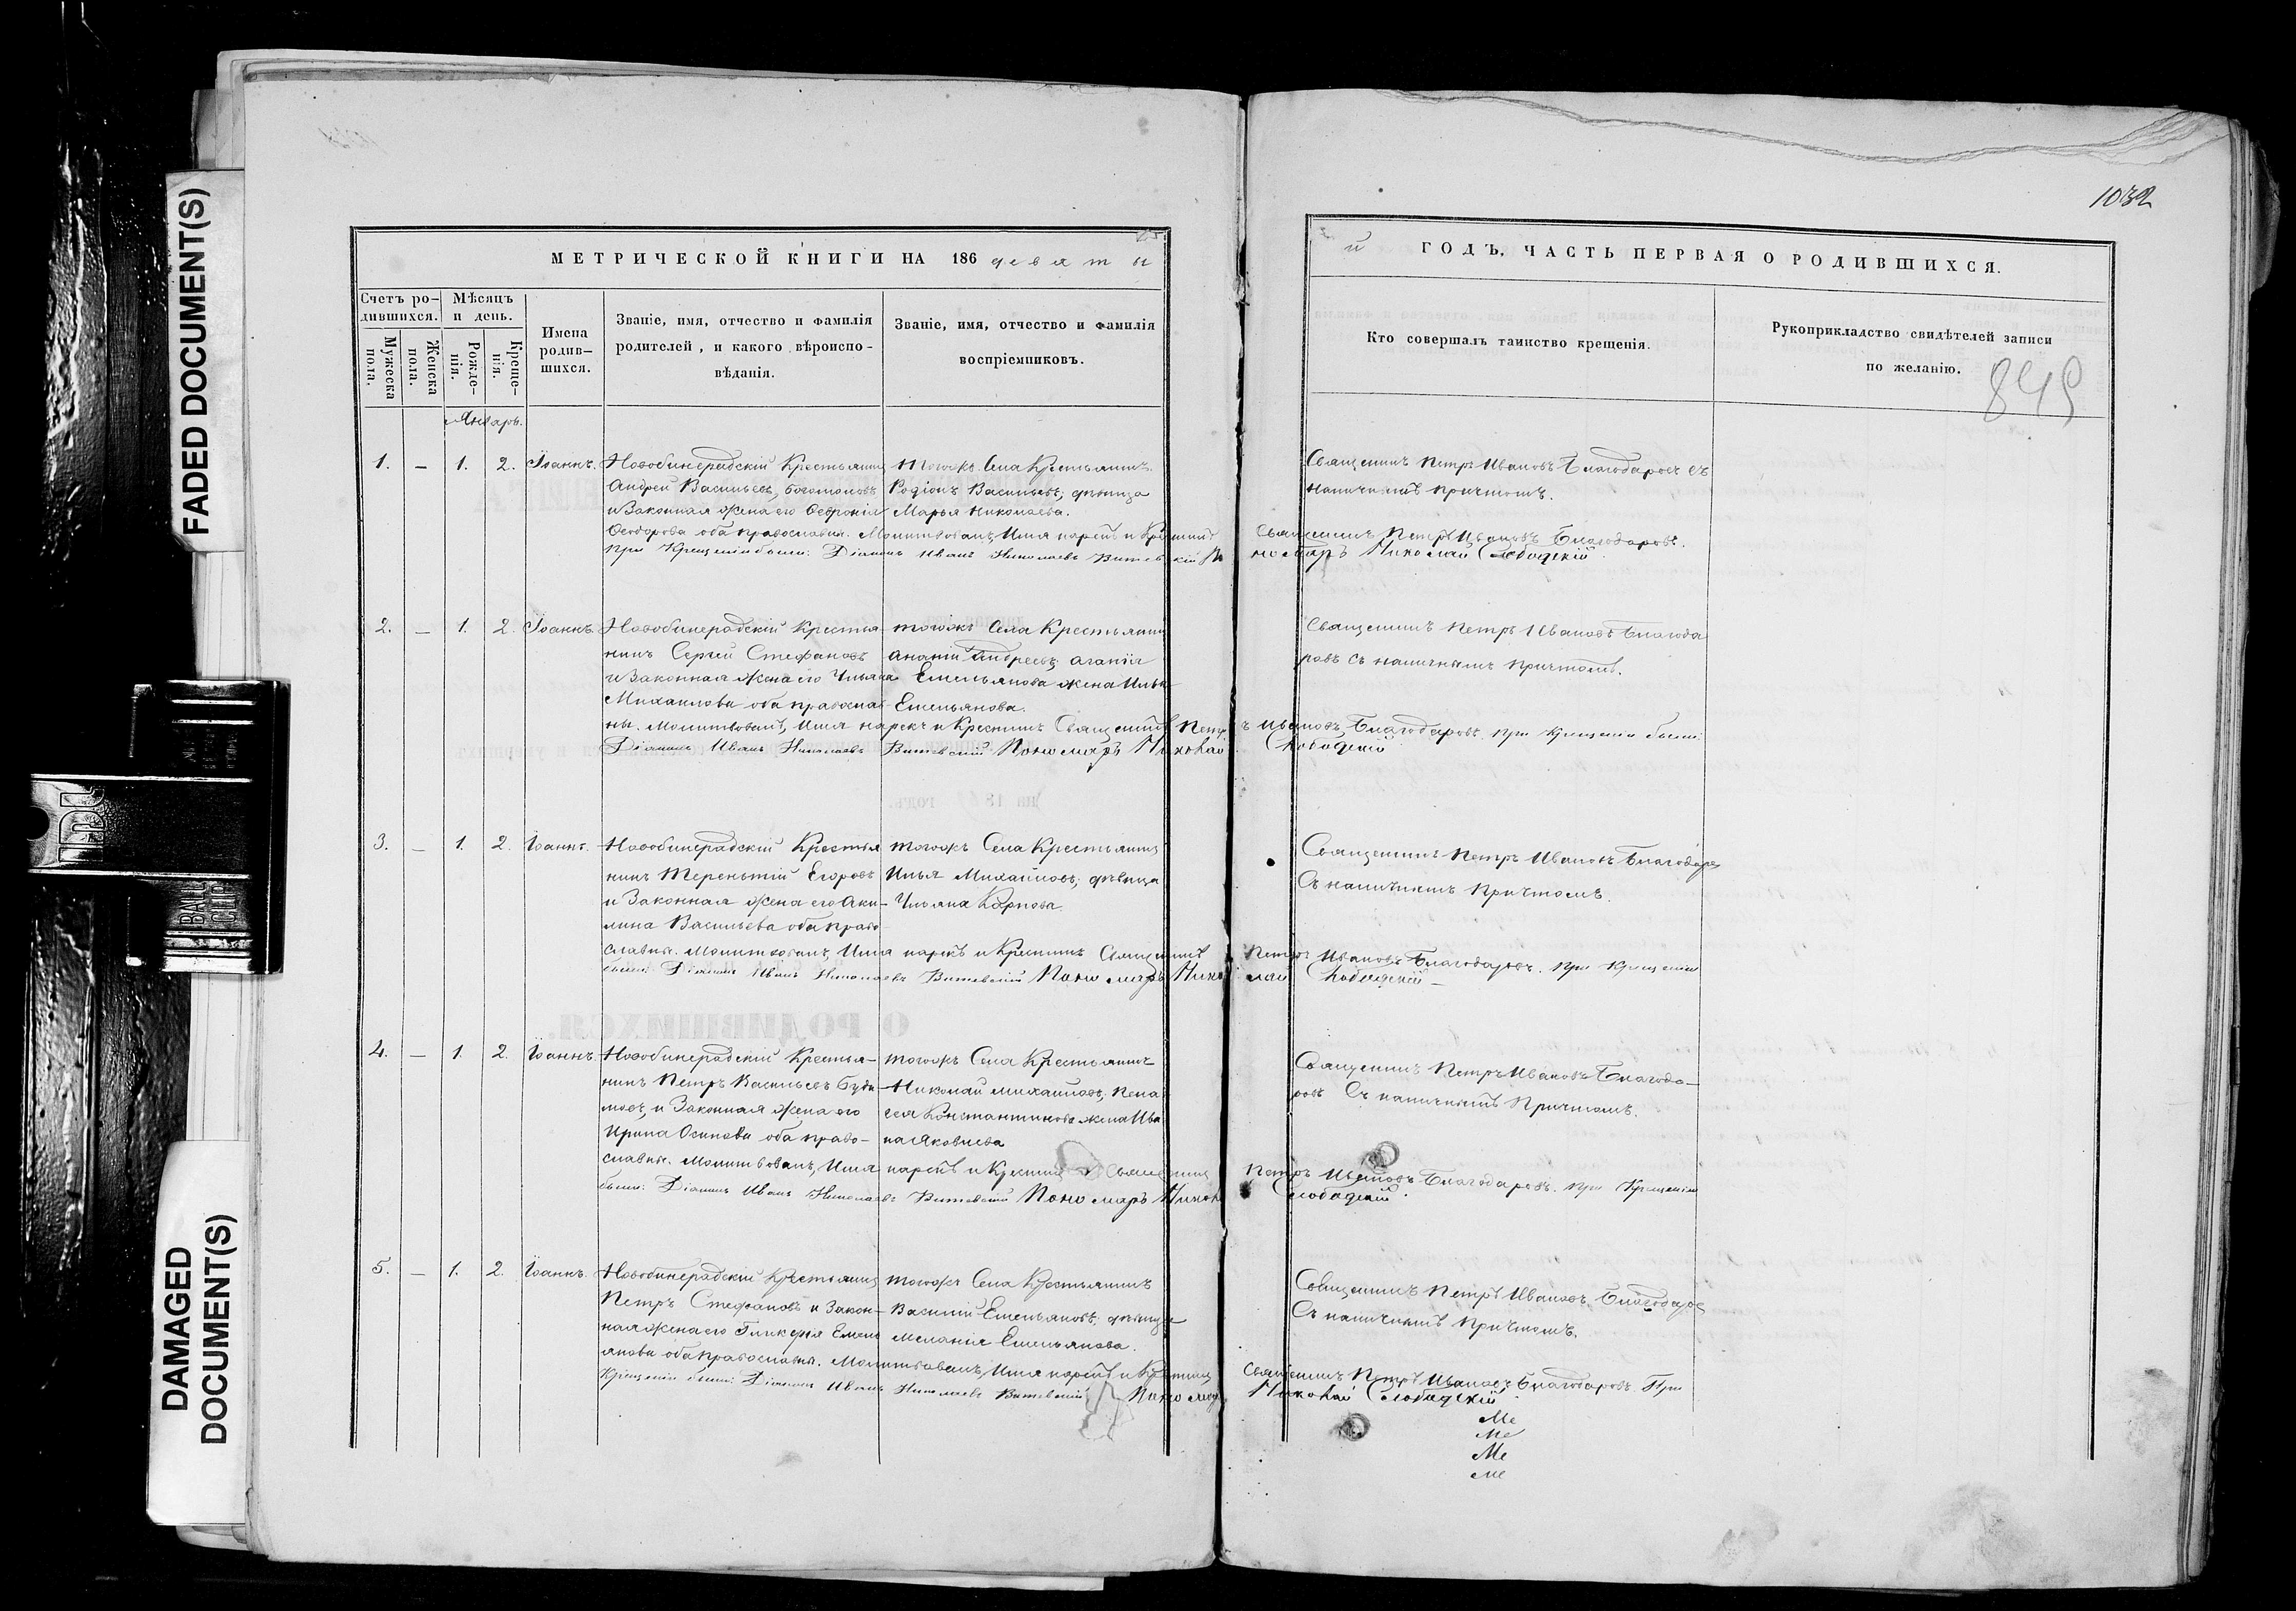 FADED DOCUMENT(S)
DAMAGED
DOCUMENT(S)
1032
МЕТРИЧЕСКОЙ КНИГИ НА 186 девяты
й ГОДЪ, ЧАСТЬ ПЕРВАЯ О РОДИВШИХСЯ.
Счетъ ро-
дившихся.
Мужеска
пола.
Женска
пола.
Мѣсяцъ
и день.
Рожде-
нія.
Креще-
нія.
Имена
родив-
шихся.
Званіе, имя, отчество и фамилія
родителей, и какого вѣроиспо-
вѣданія.
Званіе, имя, отчество и фамилія
воспріемниковъ.
Кто совершалъ таинство крещенія.
Рукоприкладство свидѣтелей записи
по желанію.
849
Январь.
1. – 1. 2. Іоаннъ.
Новобинерадскій Крестьянинъ
Андрей Васильевъ, Богомоловъ
и Законная жена его Февронія
Феодорова оба православные.
тогожъ Села Крестьянинъ
Родіонъ Васильевъ; дѣвица
Марья Николаева.
Священникъ Петръ Ивановъ Благодаровъ съ
наличнымъ причтомъ.
Молитвовалъ, Имя нарекъ и Крестилъ Священникъ Петръ Ивановъ Благодаровъ.
При Крещеніи были: Діаконъ Иванъ Николаевъ Витевскій Пономарь Николай Слободскій
2. – 1. 2. Іоаннъ.
Новобинерадскій Крестья
нинъ Сергей Стефановъ
и Законная жена его Ульяна
Михайлова оба православ
ны.
тогожъ Села Крестьянинъ
Ананій Андреевъ; Агапія
Емельянова жена Ильи
Емельянова.
Священникъ Петръ Ивановъ Благода
ровъ съ наличнымъ причтомъ.
Молитвовалъ, Имя нарекъ и Крестилъ Священникъ Петръ Ивановъ Благодаровъ. При Крещеніи были:
Діаконъ Иванъ Николаевъ Витевскій Пономарь Николай Слободскій
3. – 1. 2. Іоаннъ.
Новобинерадскій Крестья
нинъ Терентій Егоровъ
и Законная жена его Аки-
лина Васильева оба право
славны.
тогожъ Села Крестьянинъ
Илья Михайловъ; дѣвица
Ульяна Карпова.
Священникъ Петръ Ивановъ Благодаро
Съ наличнымъ Причтомъ.
Молитвовалъ, Имя нарекъ и Крестилъ Священникъ Петръ Ивановъ Благодаровъ. При Крещеніи
были: Діаконъ Иванъ Николаевъ Витевскій Пономарь Николай Слободскій
4. – 1. 2. Іоаннъ.
Новобинерадскій Крестья-
нинъ Петръ Васильевъ
и Законная жена его
Ирина Осипова оба право-
славны.
тогожъ Села Крестьянинъ
Николай Михайловъ, Пела
гея Константинова жена Ива
на Яковлева
Священникъ Петръ Ивановъ Благода-
ровъ Съ наличнымъ Причтомъ.
Молитвовалъ, Имя нарекъ и Крестилъ Священникъ Петръ Ивановъ Благодаровъ. При Крещеніи
были: Діаконъ Иванъ Николаевъ Витевскій Пономарь Николай Слободскій.
5. – 1. 2. Іоаннъ.
Новобинерадскій Крестьянинъ
Петръ Стефановъ и Закон-
ная жена его Гликерія Емель
янова оба православны.
тогожъ Села Крестьянинъ
Василій Емельяновъ; дѣвица
Меланія Емельянова.
Священникъ Петръ Ивановъ Благодаров
Съ наличнымъ Причтомъ.
Молитвовалъ, Имя нарекъ и Крестилъ Священникъ Петръ Ивановъ Благодаровъ. При
Крещеніи были: Діаконъ Иванъ Николаевъ Витевскій Пономарь Николай Слободскій
Ме
Ме
Ме
Ме